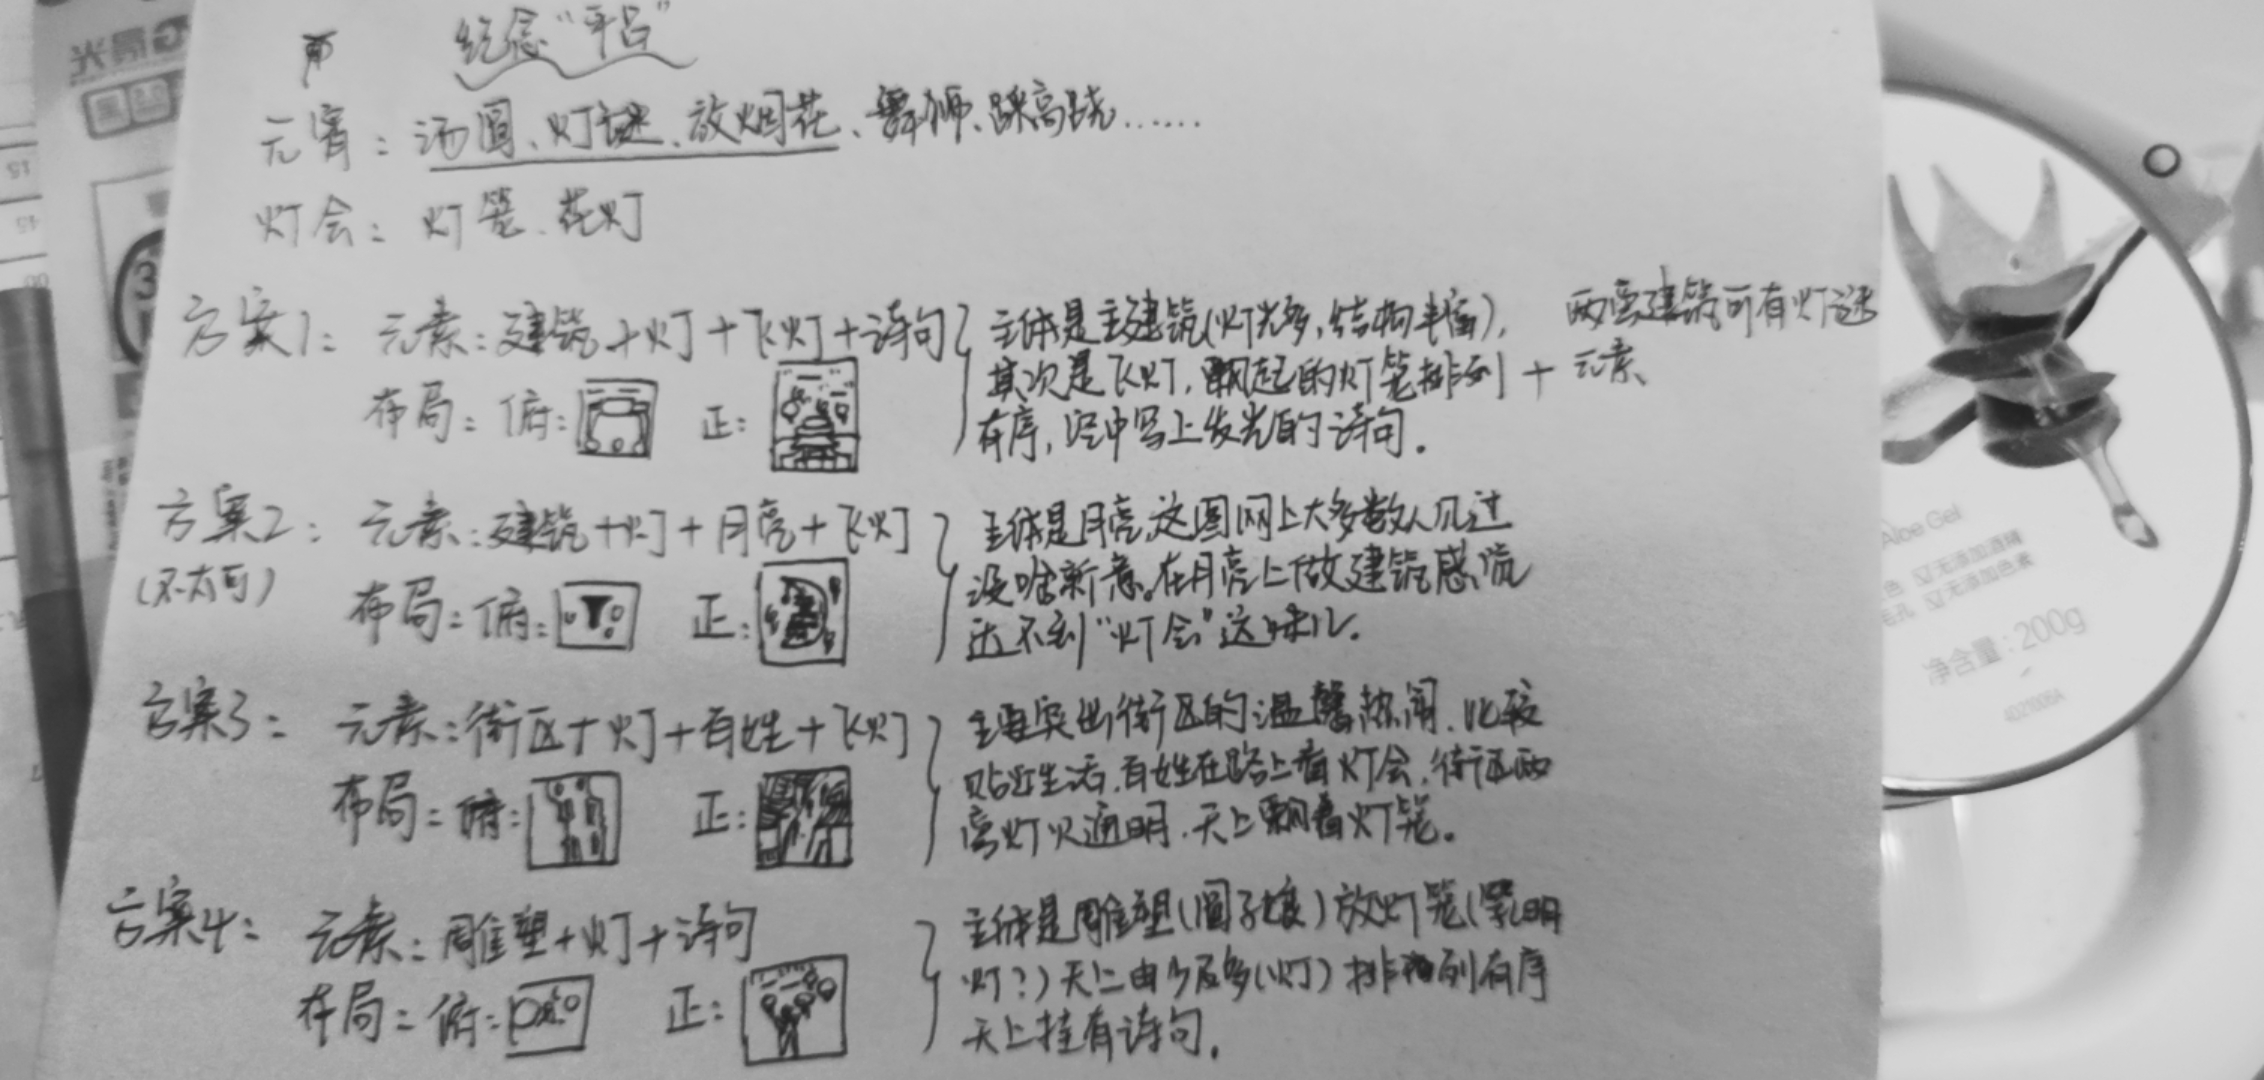 纪念“平台”
元宵：汤圆、灯谜、放烟花、舞狮、踩高跷……
灯会：灯笼、花灯
方案1：元素：建筑+灯+飞灯+诗句
布局：俯： 正：
主体是主建筑(灯光多，结构丰富)，
其次是飞灯，飘起的灯笼排列
有序，空中写上发光的诗句。
+ 两旁建筑可有灯谜
元素、
方案2：元素：建筑+灯+月亮+飞灯
(不太可)
布局：俯： 正：
主体是月亮，这图网上大多数人见过
没啥新意。在月亮上做建筑感觉
达不到“灯会”这味儿。
方案3：元素：街区+灯+百姓+飞灯
布局：俯： 正：
主要突出街区的温馨热闹，比较
贴近生活，百姓在路上看灯会，街区两
旁灯火通明，天上飘着灯笼。
方案4：元素：雕塑+灯+诗句
布局：俯： 正：
主体是雕塑(圆子娘)放灯笼(孔明
灯？)天上由少及多(灯)排列有序
天上挂有诗句。
Aloe Gel
无添加酒精
无添加色素
净含量：200g